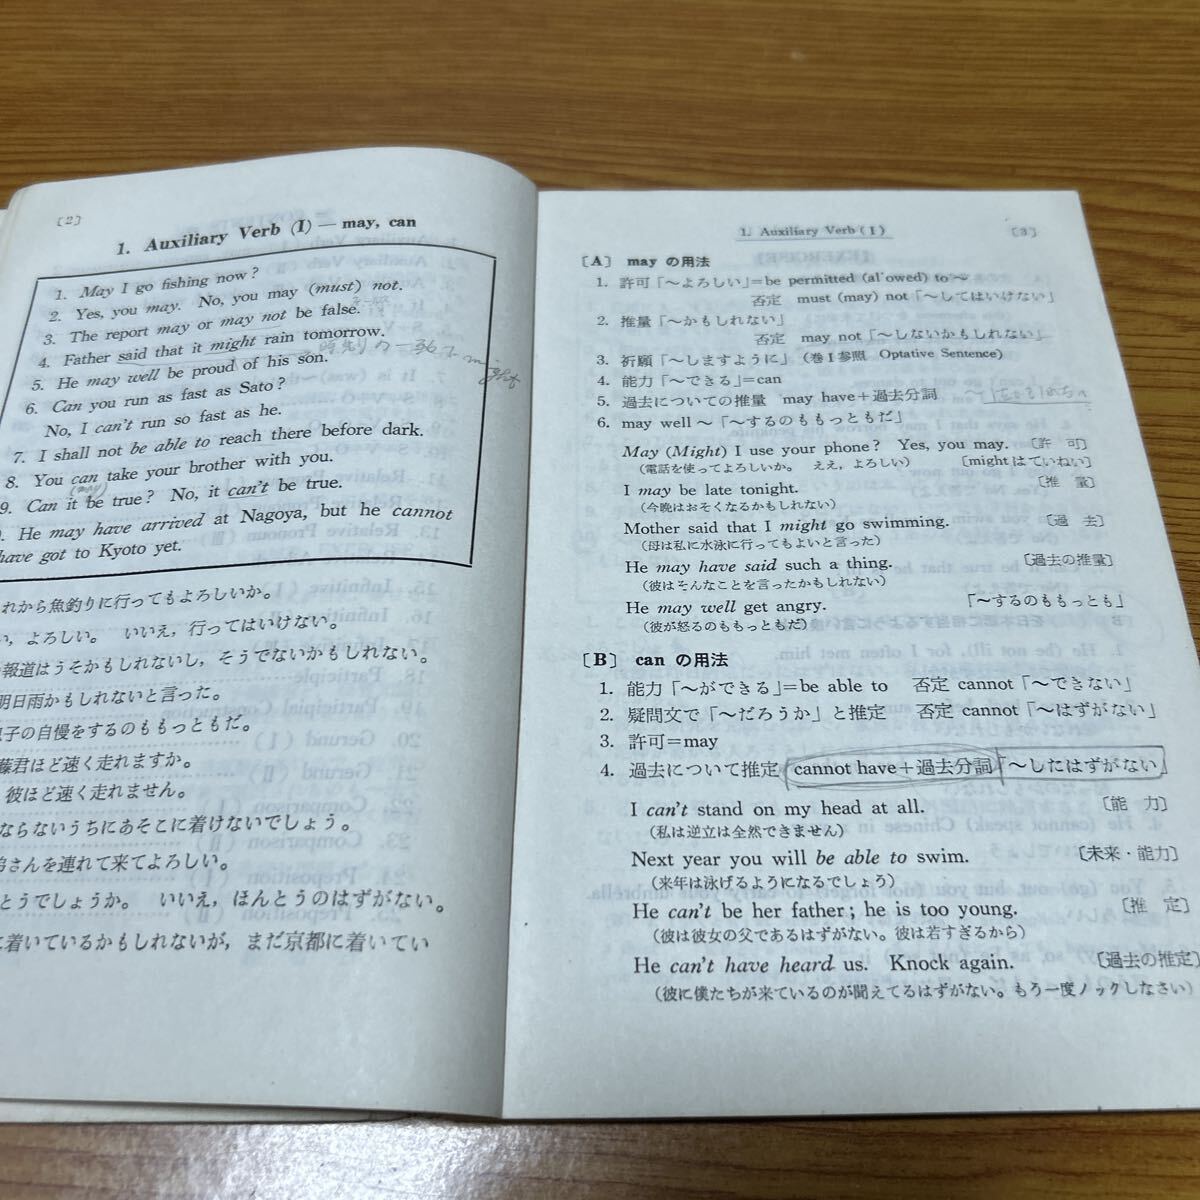 〔2〕
1. Auxiliary Verb (I) — may, can
1. May I go fishing now?
2. Yes, you may. No, you may (must) not.
3. The report may or may not be false.
4. Father said that it might rain tomorrow.
5. He may well be proud of his son.
6. Can you run as fast as Sato?
No, I can't run so fast as he.
7. I shall not be able to reach there before dark.
8. You can take your brother with you.
(may)
9. Can it be true? No, it can't be true.
He may have arrived at Nagoya, but he cannot
have got to Kyoto yet.
れから魚釣りに行ってもよろしいか。
い，よろしい。 いいえ，行ってはいけない。
報道はうそかもしれないし，そうでないかもしれない。
明日雨かもしれないと言った。
息子の自慢をするのももっともだ。
藤君ほど速く走れますか。
彼ほど速く走れません。
ならないうちにあそこに着けないでしょう。
弟さんを連れて来てよろしい。
とうでしょうか。 いいえ，ほんとうのはずがない。
に着いているかもしれないが，まだ京都に着いてい
1. Auxiliary Verb (I)
〔3〕
〔A〕 may の用法
1. 許可「～よろしい」=be permitted (al'owed) to～
否定 must (may) not「～してはいけない」
2. 推量「～かもしれない」
否定 may not「～しないかもしれない」
3. 祈願「～しますように」(巻Ⅰ参照 Optative Sentence)
4. 能力「～できる」=can
5. 過去についての推量 may have+過去分詞
6. may well ～「～するのももっともだ」
May (Might) I use your phone? Yes, you may. 〔許 可〕
(電話を使ってよろしいか。 ええ，よろしい) 〔might はていねい〕
I may be late tonight. 〔推 量〕
(今晩はおそくなるかもしれない)
Mother said that I might go swimming. 〔過 去〕
(母は私に水泳に行ってもよいと言った)
He may have said such a thing. 〔過去の推量〕
(彼はそんなことを言ったかもしれない)
He may well get angry. 「～するのももっとも」
(彼が怒るのももっともだ)
〔B〕 can の用法
1. 能力「～ができる」=be able to 否定 cannot「～できない」
2. 疑問文で「～だろうか」と推定 否定 cannot「～はずがない」
3. 許可=may
4. 過去について推定 cannot have+過去分詞「～したはずがない」
I can't stand on my head at all. 〔能 力〕
(私は逆立は全然できません)
Next year you will be able to swim. 〔未来・能力〕
(来年は泳げるようになるでしょう)
He can't be her father; he is too young. 〔推 定〕
(彼は彼女の父であるはずがない。彼は若すぎるから)
He can't have heard us. Knock again. 〔過去の推定〕
(彼に僕たちが来ているのが聞えてるはずがない。もう一度ノックしなさい)